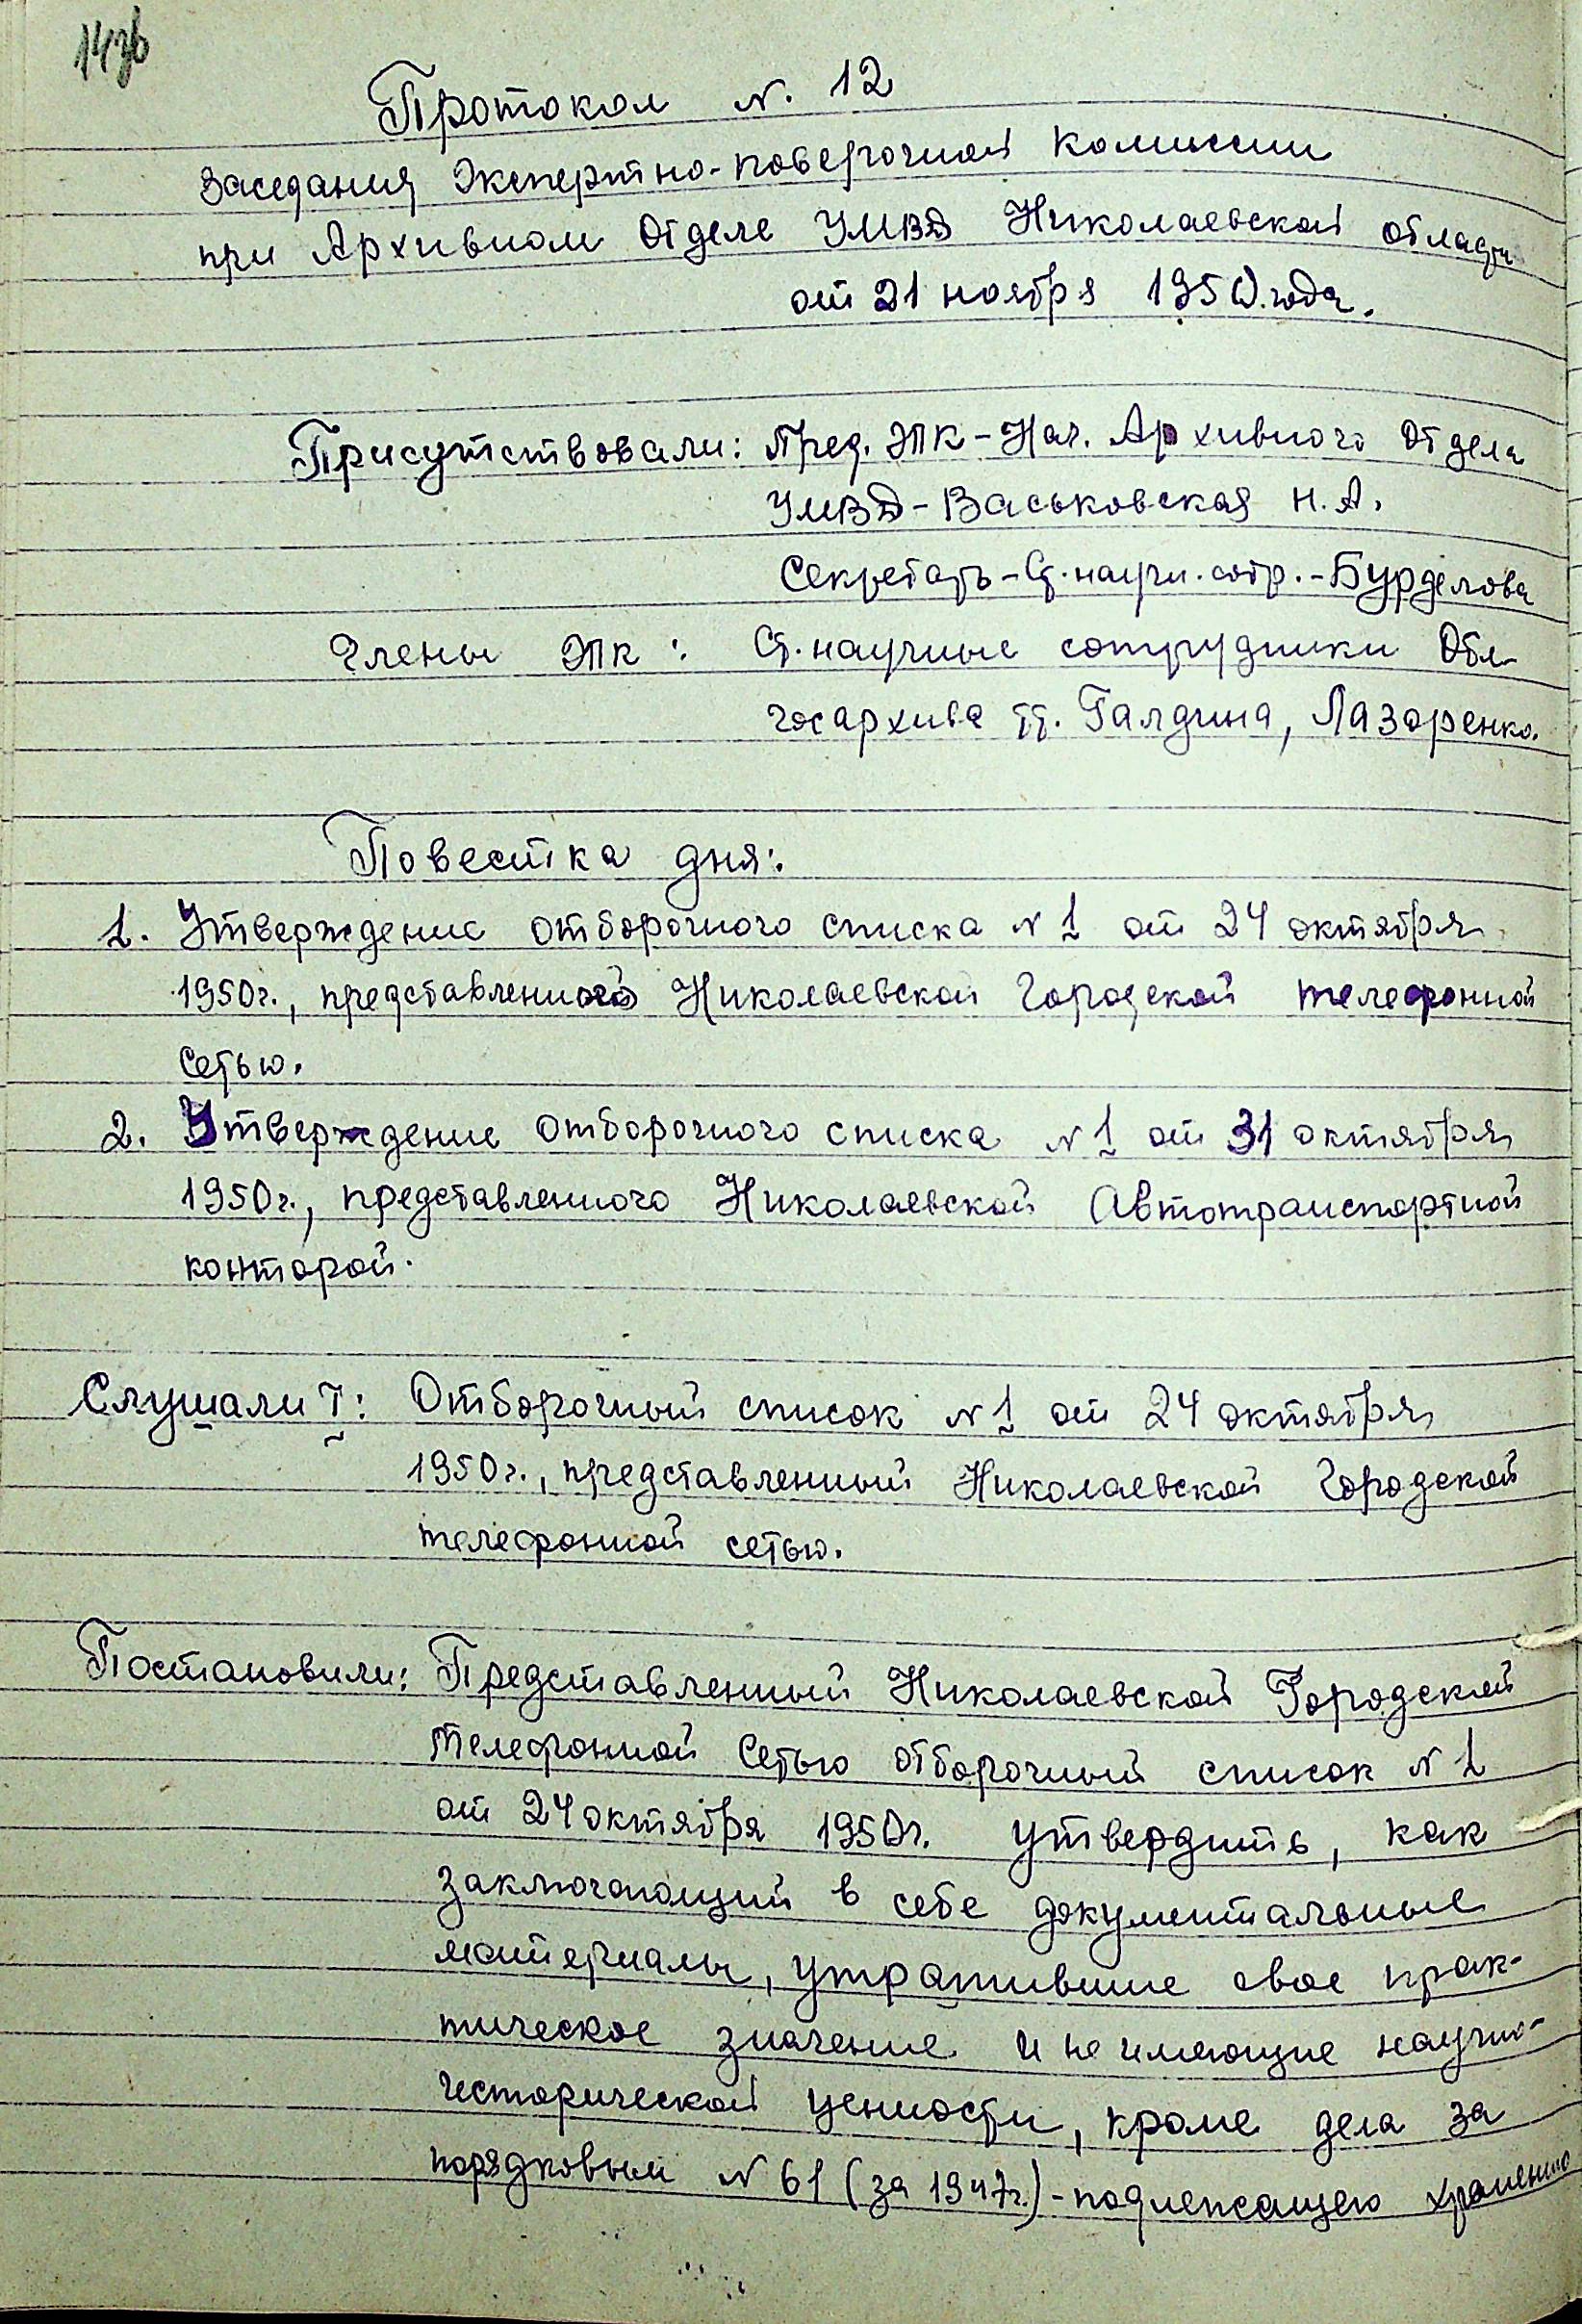 Протокол N. 12
заседания Экспертно-поверочной Комиссии
при Архивном Отделе УМВД Николаевской области
от 21 ноября 1950 года.
Присутствовали: Пред. ЭПК - Нач. Архивного Отдела
УМВД - Васьковская Н.А.
Секретарь - Ст. научн. сотр. - Бурделова
Члены ЭПК: Ст. научные сотрудники Обл-
госархива т.т. Галдина, Лазаренко.
Повестка дня:
1. Утверждение отборочного списка N 1 от 24 октября
1950г., представленного Николаевской Городской телефонной
сетью.
2. Утверждение отборочного списка N 1 от 31 октября
1950г., представленного Николаевской Автотранспортной
конторой.
Слушали I: Отборочный список N 1 от 24 октября
1950г., представленный Николаевской Городской
телефонной сетью.
Постановили: Представленный Николаевской Городской
Телефонной Сетью отборочный список N 1
от 24 октября 1950г. утвердить, как
заключающий в себе документальные
материалы, утратившие свое прак-
тическое значение и не имеющие научно-
исторической ценности, кроме дела за
порядковым N 61 (за 1947г.) - подлежащего хранению